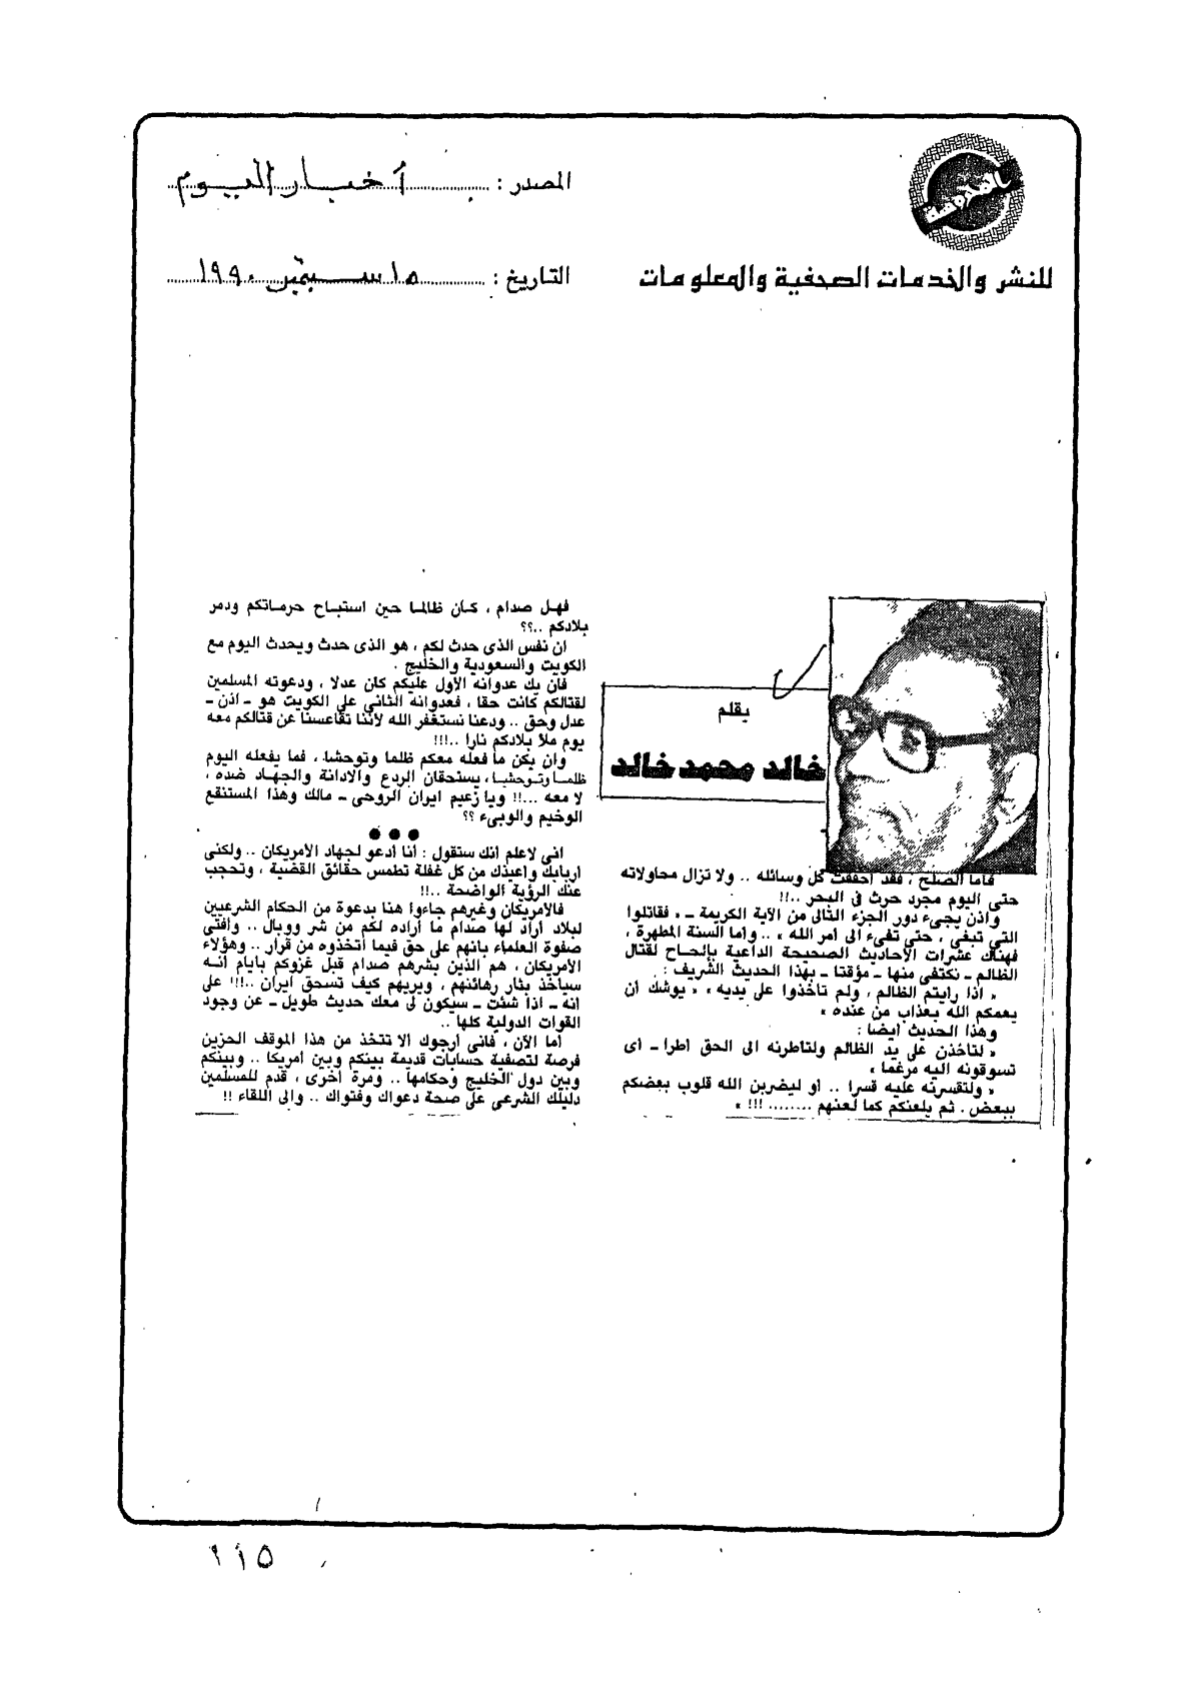 المصدر : أخبار اليوم
للنشر والخدمات الصحفية والمعلومات
التاريخ : ١٥ سبتمبر ١٩٩٠
بقلم
خالد محمد خالد
فاما الصلح ، فقد اخفقت كل وسائله .. ولا تزال محاولاته
حتى اليوم مجرد حرث فى البحر ..!!
واذن يجىء دور الجزء الثانى من الآية الكريمة ـ « فقاتلوا
التى تبغى ، حتى تفىء الى امر الله » .. واما السنة المطهرة ،
فهناك عشرات الأحاديث الصحيحة الداعية بإلحاح لقتال
الظالم ـ نكتفى منها ـ مؤقتا ـ بهذا الحديث الشريف :
« اذا رايتم الظالم ، ولم تاخذوا على يديه ، « يوشك أن
يعمكم الله بعذاب من عنده »
وهذا الحديث أيضا :
« لتاخذن على يد الظالم ولتاطرنه الى الحق اطرا ـ أى
تسوقونه اليه مرغما »
« ولتقسرنه عليه قسرا .. او ليضربن الله قلوب بعضكم
ببعض . ثم يلعنكم كما لعنهم ........ !!! »
فهل صدام ، كان ظالما حين استباح حرماتكم ودمر
بلادكم ..؟؟
ان نفس الذى حدث لكم ، هو الذى حدث ويحدث اليوم مع
الكويت والسعودية والخليج .
فان يك عدوانه الأول عليكم كان عدلا ، ودعوته المسلمين
لقتالكم كانت حقا ، فعدوانه الثانى على الكويت هو ـ اذن ـ
عدل وحق .. ودعنا نستغفر الله لأننا تقاعسنا عن قتالكم معه
يوم ملا بلادكم نارا ..!!!
وان يكن ما فعله معكم ظلما وتوحشا ، فما يفعله اليوم
ظلما وتوحشا ، يستحقان الردع والادانة والجهاد ضده ،
لا معه ...!! ويا زعيم ايران الروحى ـ مالك وهذا المستنقع
الوخيم والوبىء ؟؟
● ● ●
انى لاعلم انك ستقول : أنا أدعو لجهاد الأمريكان .. ولكنى
اربابك واعيذك من كل غفلة تطمس حقائق القضية ، وتحجب
عنك الرؤية الواضحة ..!!
فالأمريكان وغيرهم جاءوا هنا بدعوة من الحكام الشرعيين
لبلاد أراد لها صدام ما أراده لكم من شر ووبال .. وافتى
صفوة العلماء بانهم على حق فيما اتخذوه من قرار .. وهؤلاء
الأمريكان ، هم الذين بشرهم صدام قبل غزوكم بايام انه
سياخذ بثار رهائنهم ، ويريهم كيف تسحق ايران ..!!! على
انه ـ اذا شئت ـ سيكون لى معك حديث طويل ـ عن وجود
القوات الدولية كلها ..
أما الآن ، فانى أرجوك ألا تتخذ من هذا الموقف الحزين
فرصة لتصفية حسابات قديمة بينكم وبين امريكا .. وبينكم
وبين دول الخليج وحكامها .. ومرة أخرى ، قدم للمسلمين
دليلك الشرعى على صحة دعواك وفتواك .. والى اللقاء !!